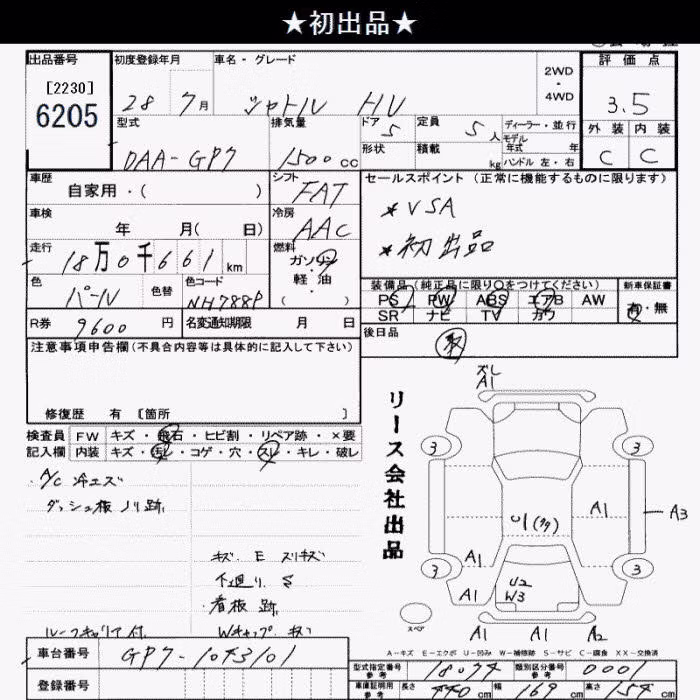 ★初出品★
出品番号 初度登録年月 車名・グレード 2WD・4WD 評価点
[2230]
6205
28 7月 シャトル HV 3.5
型式 排気量 ドア 5 定員 5人 ディーラー・並行 外装 内装
モデル年式 年
DAA-GP7 1500cc 形状 積載 kg ハンドル 左・右 C C
車歴 シフト セールスポイント (正常に機能するものに限ります)
自家用・( ) FAT
*VSA
車検 冷房
年 月( 日) AAC
*初出品
走行 燃料
18万0千661km ガソリン・軽油・( )
色 色替 色コード 装備品(純正品に限り○をつけてください) 新車保証書
パール NH788P PS PW ABS エアB AW 有・無
SR ナビ TV カワ
R券 9600円 名変通知期限 月 日
後日品
注意事項申告欄(不具合内容等は具体的に記入して下さい)
修復歴 有 [箇所 ]
検査員 FW キズ・飛石・ヒビ割・リペア跡・×要
記入欄 内装 キズ・汚レ・コゲ・穴・スレ・キレ・破レ
A/C 冷エズ
ダッシュ板 ノリ跡
キズ E スリキズ
下廻り S
看板 跡
ルーフキャリア付 Wキャップ キズ
リース会社出品
ズレ
A1
3 3
A1 A3
U1(タタ)
A1
3 3
A1 U2
W3
スペア A1 A1 A2
A-キズ E-エクボ U-凹み W-補修跡 S-サビ C-腐食 XX-交換済
車台番号 GP7-1043101
型式指定番号 参考 18074 類別区分番号 参考 0001
登録番号
車庫証明用 参考 長さ 440cm 幅 169cm 高さ 154cm